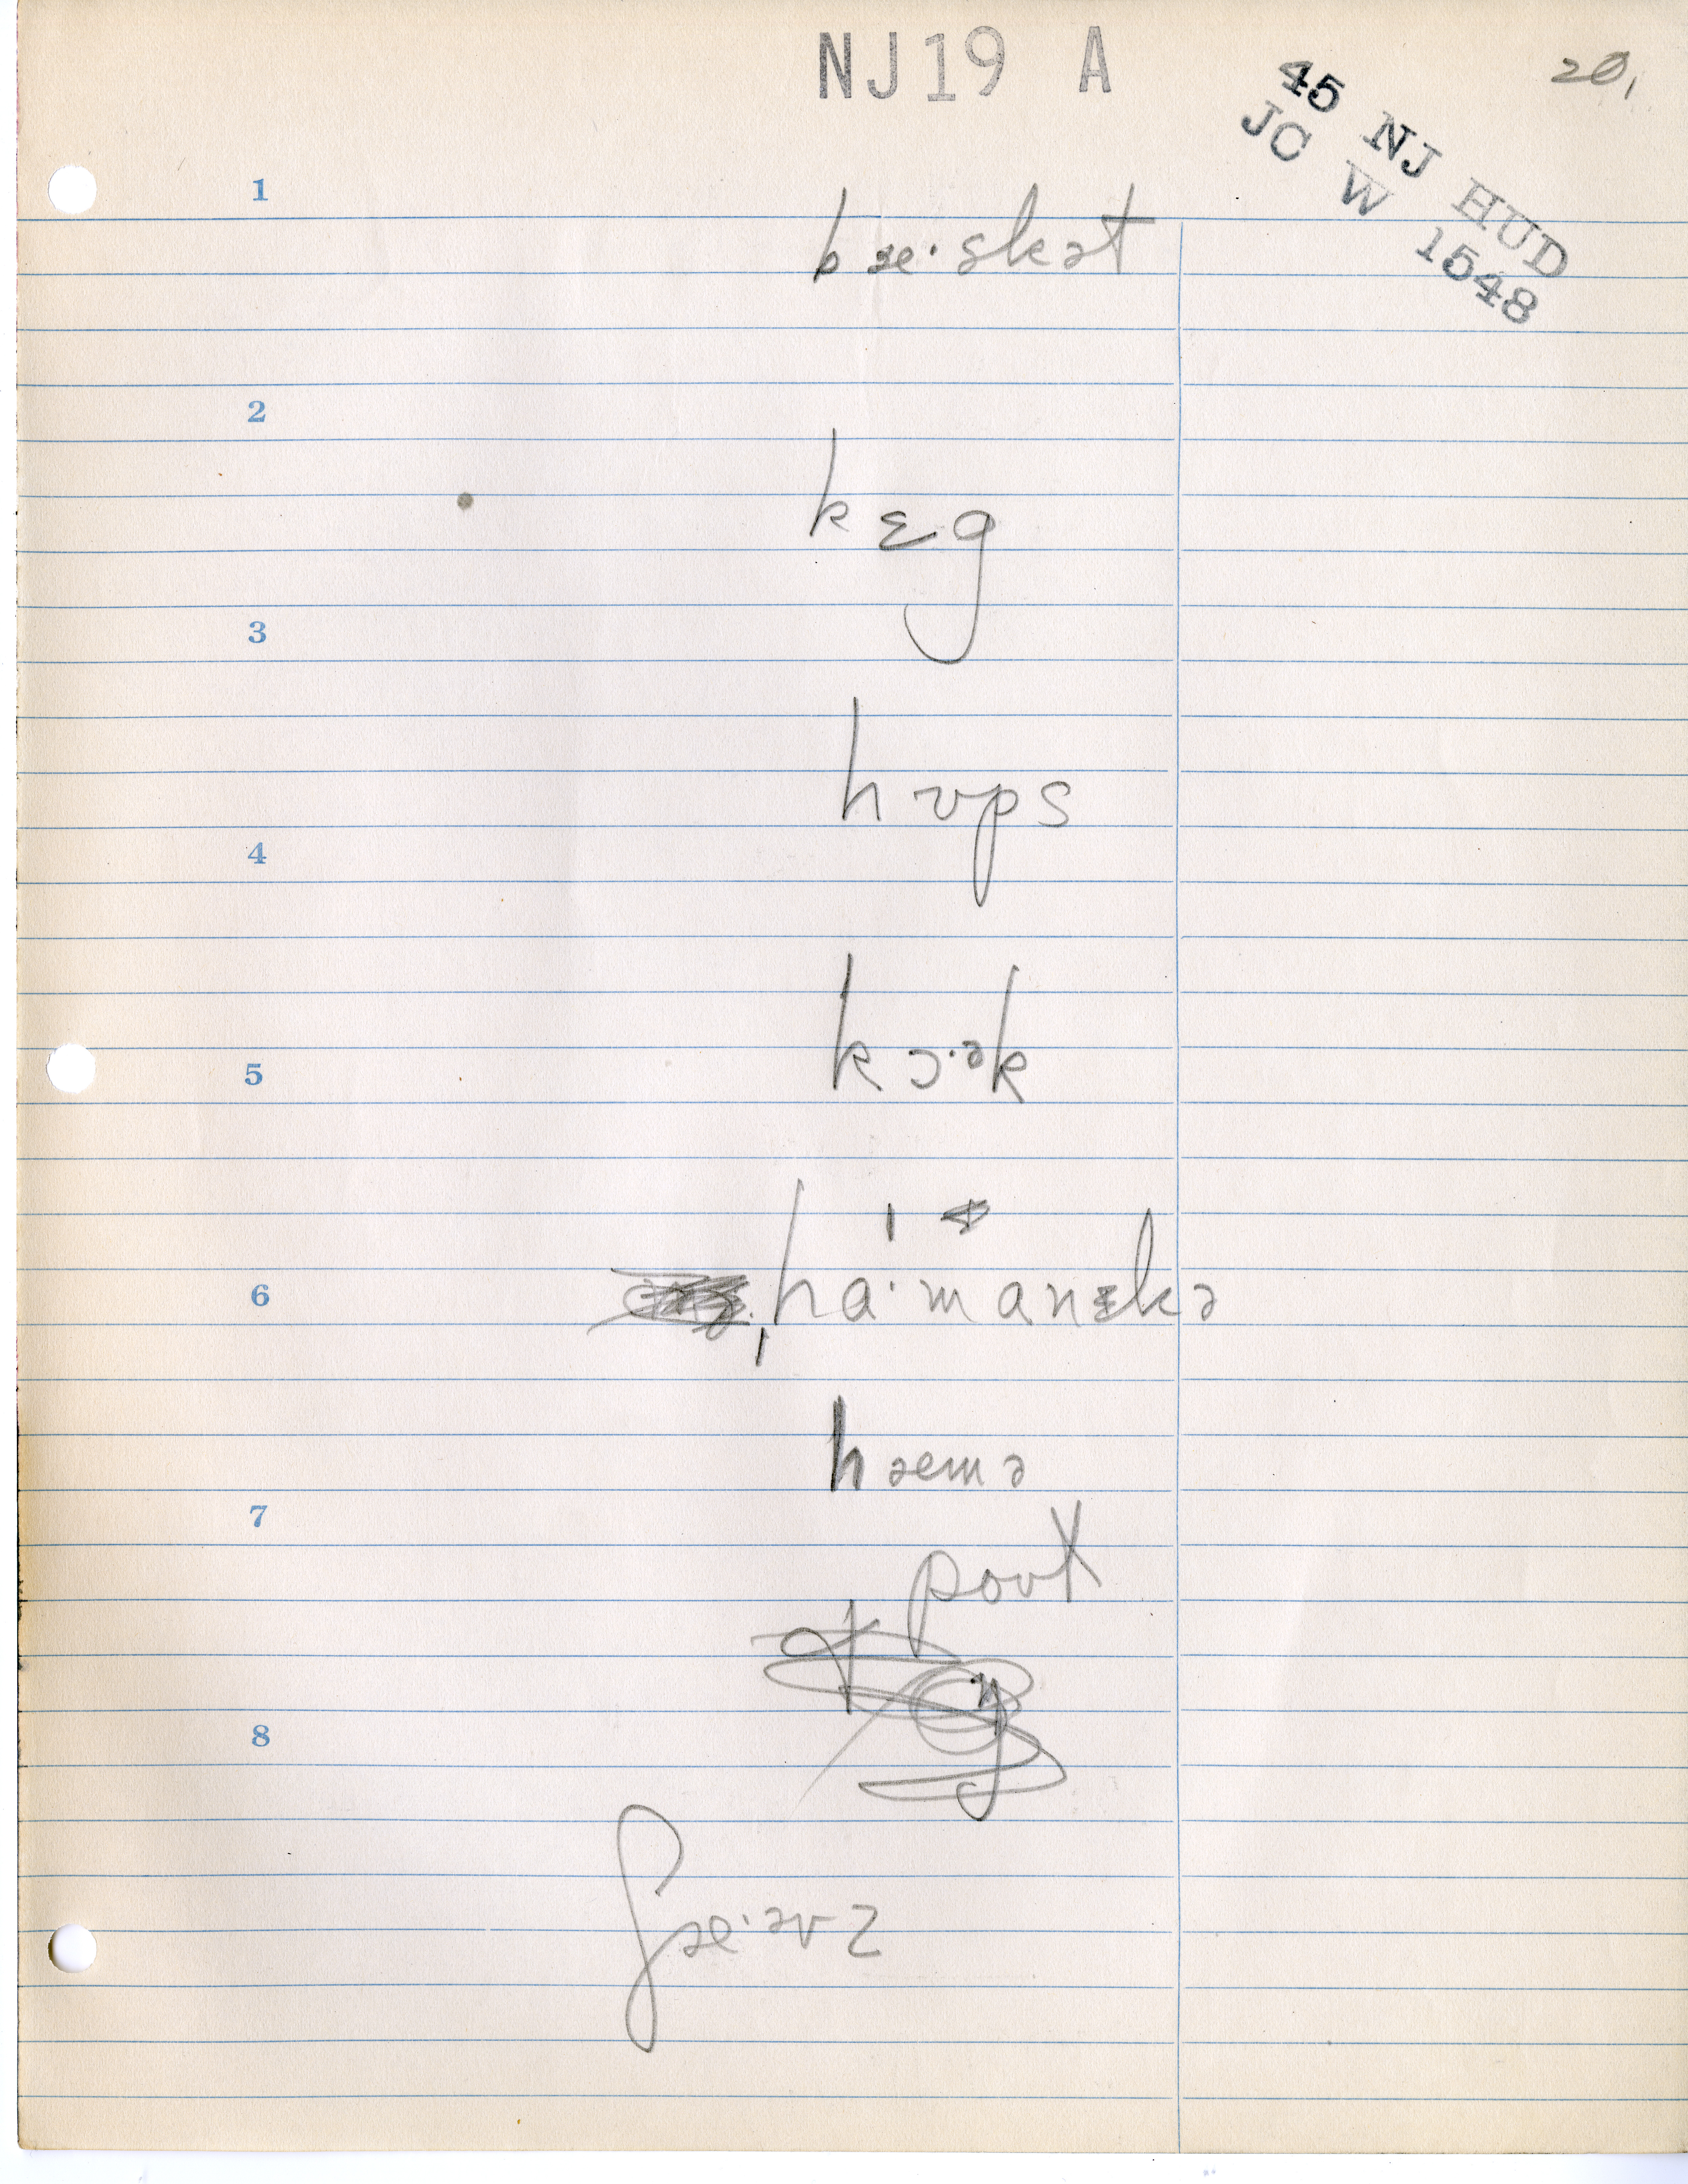 NJ19 A
20.
45 NJ HUD
JC W 1548
1
bæ·skət
2
kɛg
3
hʊps
4
kɔ·ək
5
6
ˌha·ˈmanɪkə
hæmə
7
poʊt
8
ʃæ·əvz